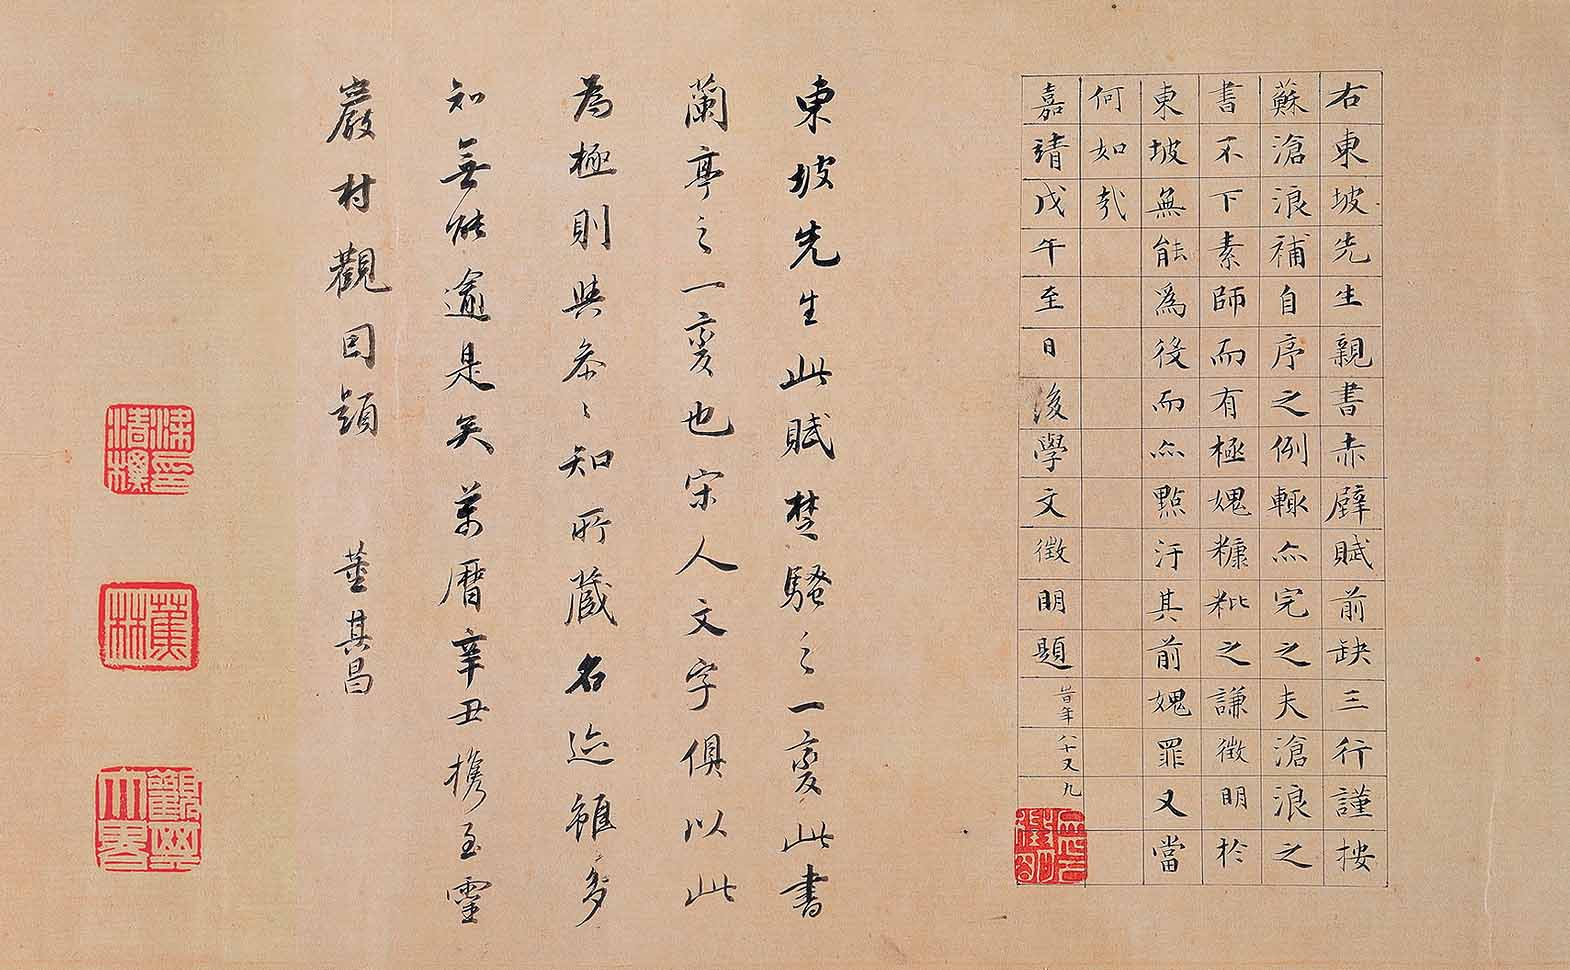 右東坡先生親書赤壁賦前缺三行謹按
蘇滄浪補自序之例輒亦完之夫滄浪之
書不下素師而有極媿糠粃之謙徵明於
東坡無能爲役而亦點汙其前媿罪又當
何如哉
嘉靖戊午至日後學文徵明題旹年八十又九
東坡先生此賦楚騷之一變此書
蘭亭之一變也宋人文字俱以此
為極則與參〻知所藏名迹雖多
知無能逾是矣萬曆辛丑攜至靈
巖村觀因題 董其昌
梁印清標
蕉林
觀其大略